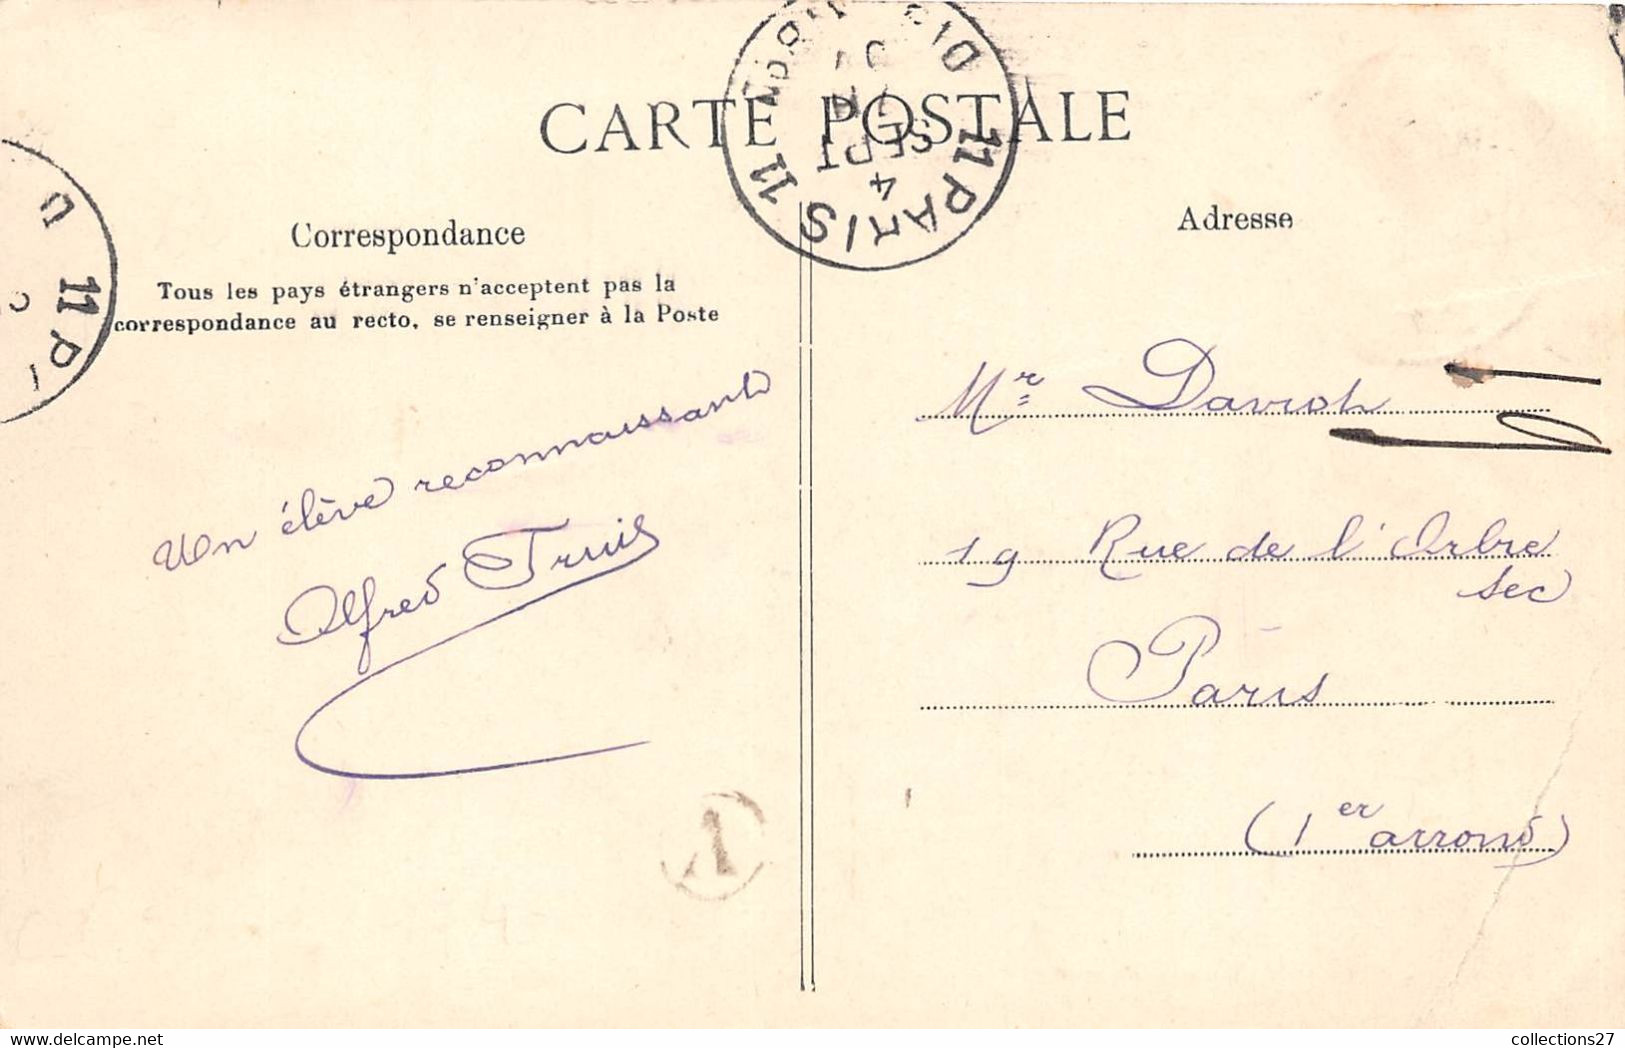 CARTE POSTALE
Correspondance
Tous les pays étrangers n'acceptent pas la
correspondance au recto, se renseigner à la Poste
Un élève reconnaissant
Alfred
Adresse
Mr
19 Rue de l'Arbre
sec
Paris
(1er arrond)
11 PARIS 11
4
SEPT
collections27